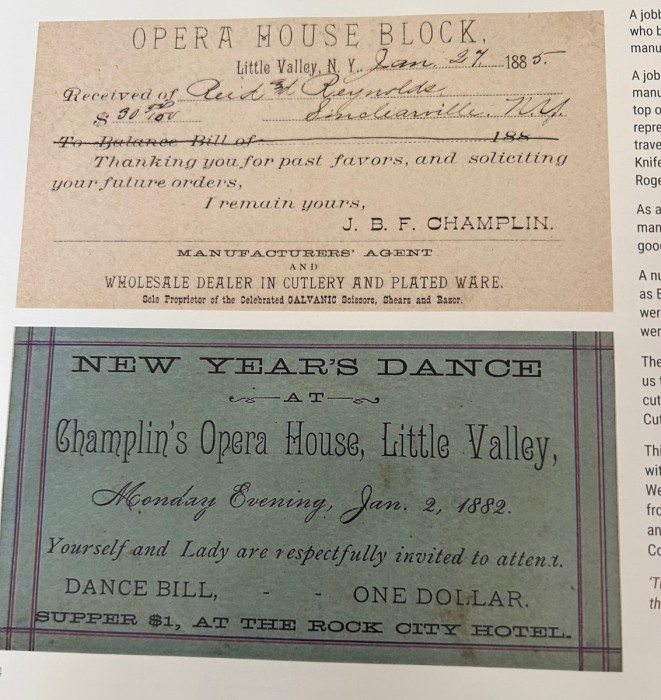 OPERA HOUSE BLOCK,
Little Valley, N. Y., Jan. 27, 1885.
Received of Reid & Reynolds
$ 30 00/100 Sinclearville, N.Y.
To Balance Bill of 188
Thanking you for past favors, and soliciting
your future orders,
I remain yours,
J. B. F. CHAMPLIN.
MANUFACTURERS' AGENT
AND
WHOLESALE DEALER IN CUTLERY AND PLATED WARE.
Sole Proprietor of the Celebrated GALVANIC Scissors, Shears and Razor.
NEW YEAR'S DANCE
AT
Champlin's Opera House, Little Valley,
Monday Evening, Jan. 2, 1882.
Yourself and Lady are respectfully invited to attend.
DANCE BILL, - - ONE DOLLAR.
SUPPER $1, AT THE ROCK CITY HOTEL.
A jobb
who b
manu
A job
manu
top o
repre
trave
Knife
Roge
As a
man
goo
A nu
as E
wer
wer
The
us t
cut
Cut
Thi
wit
We
fro
an
Co
'T
th